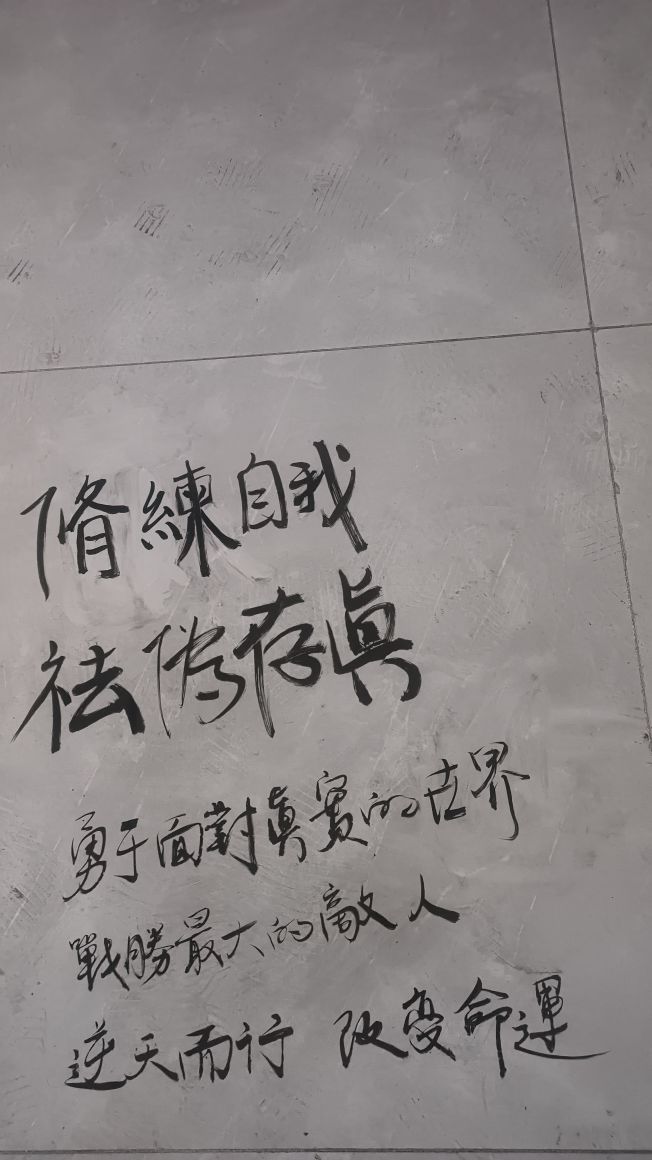 脩練自我
祛偽存眞
勇于面對眞實的世界
戰勝最大的敵人
逆天而行 改變命運